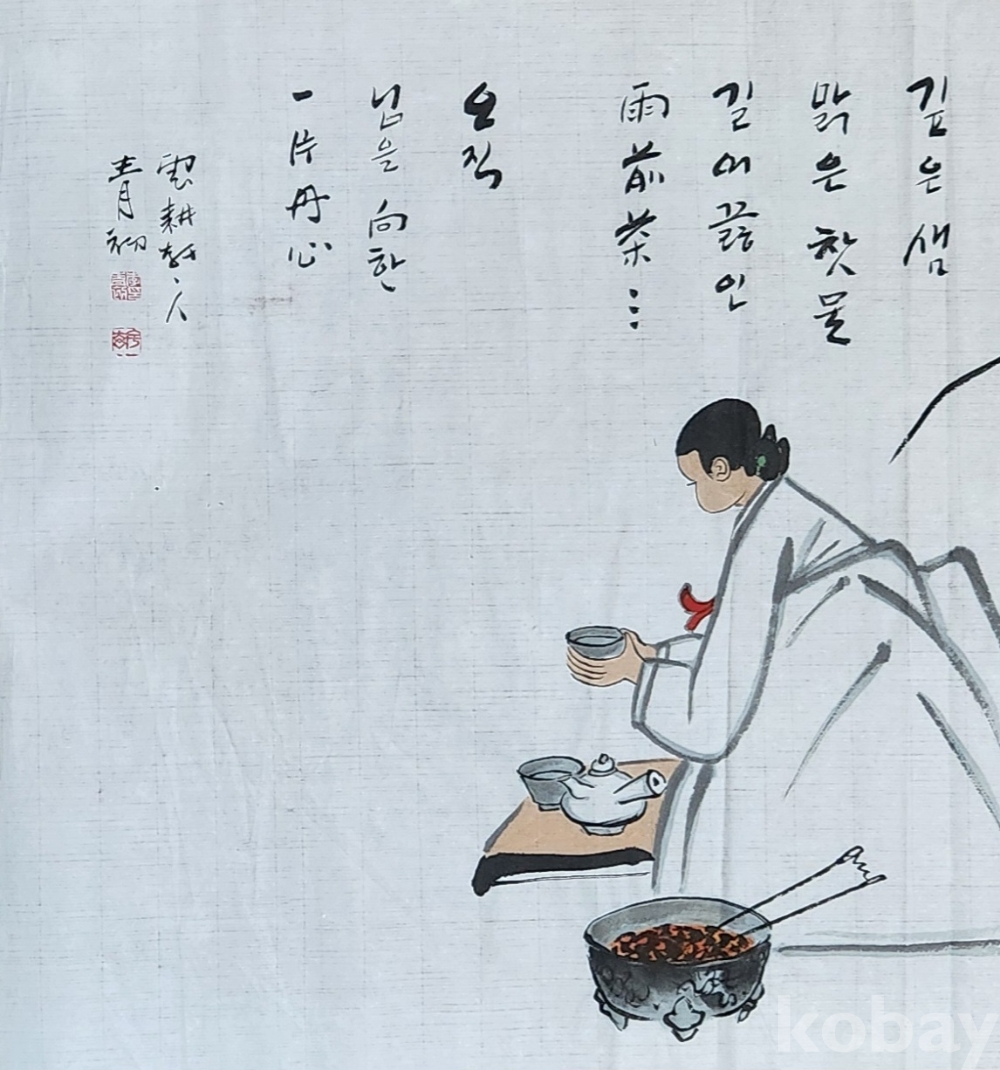 깊은 샘
맑은 찻물
길어 끓인
雨前茶:
오직
님을 向한
一片丹心
雲耕軒人
靑初
kobay